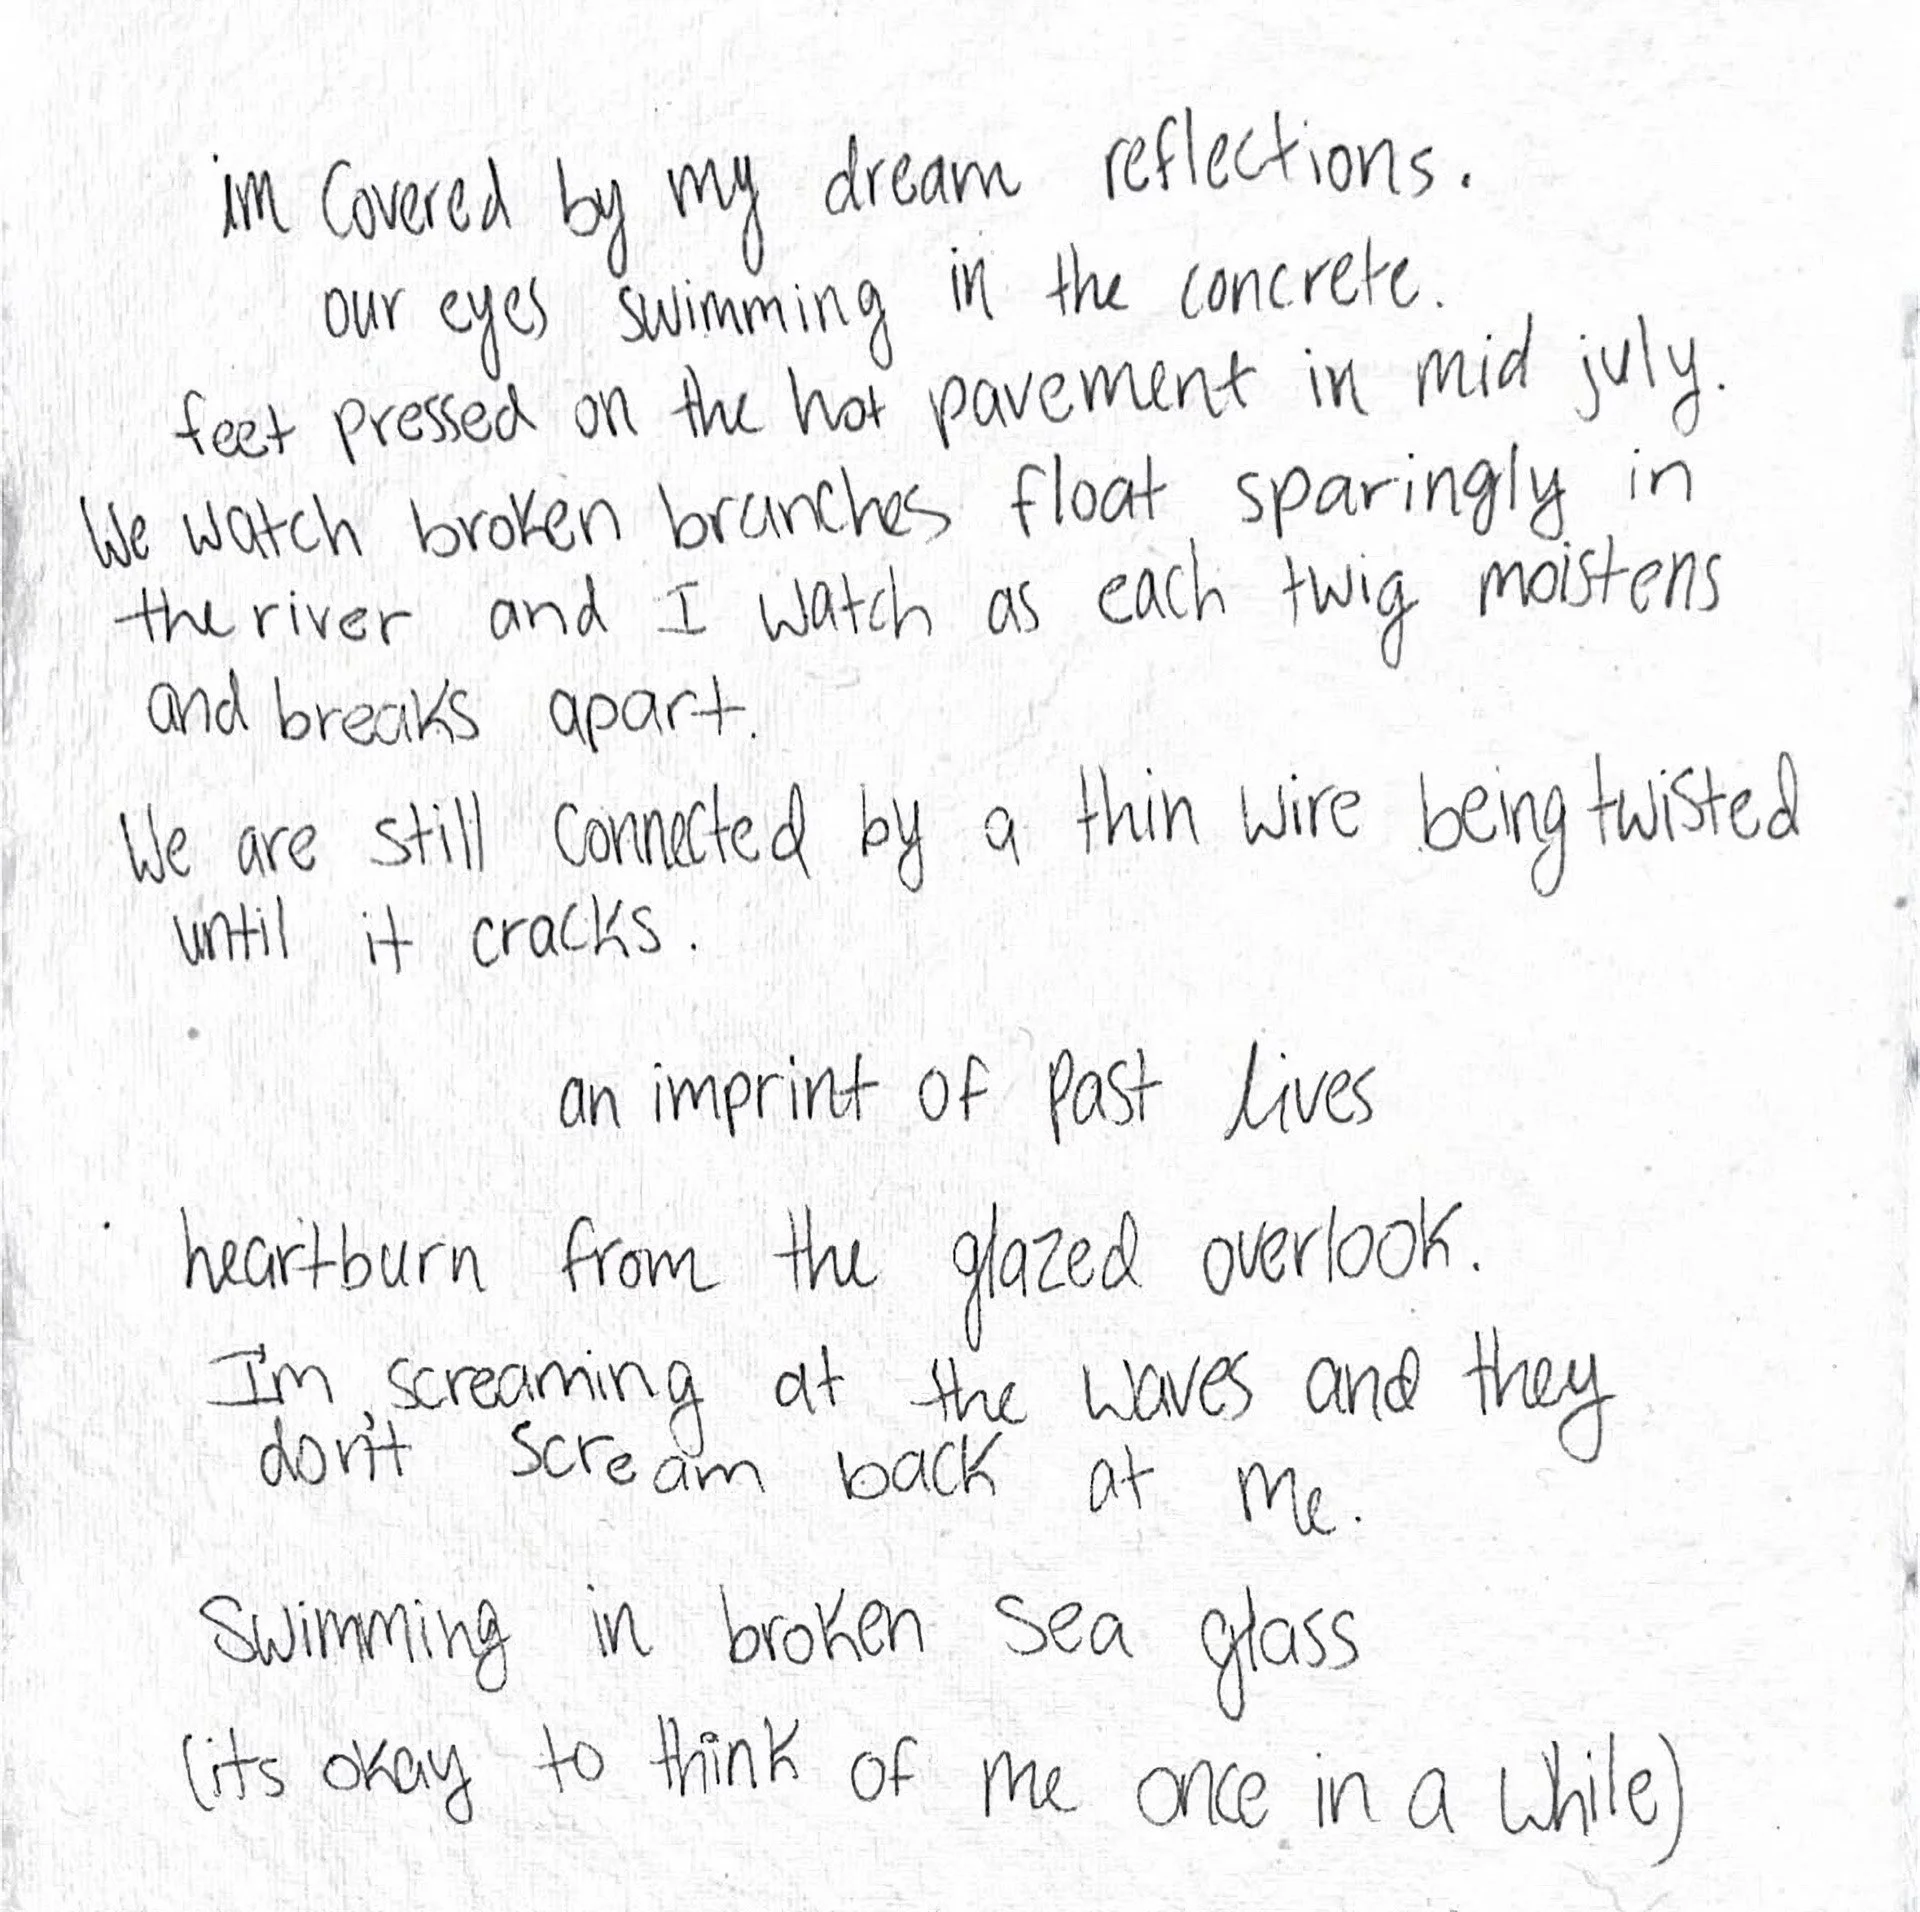 im Covered by my dream reflections.
our eyes swimming in the concrete.
feet pressed on the hot pavement in mid july.
We watch broken branches float sparingly in
the river and I watch as each twig moistens
and breaks apart.
We are still connected by a thin wire being twisted
until it cracks.
an imprint of past lives
heartburn from the glazed overlook.
I'm screaming at the waves and they
don't scream back at me.
Swimming in broken sea glass
(its okay to think of me once in a while)